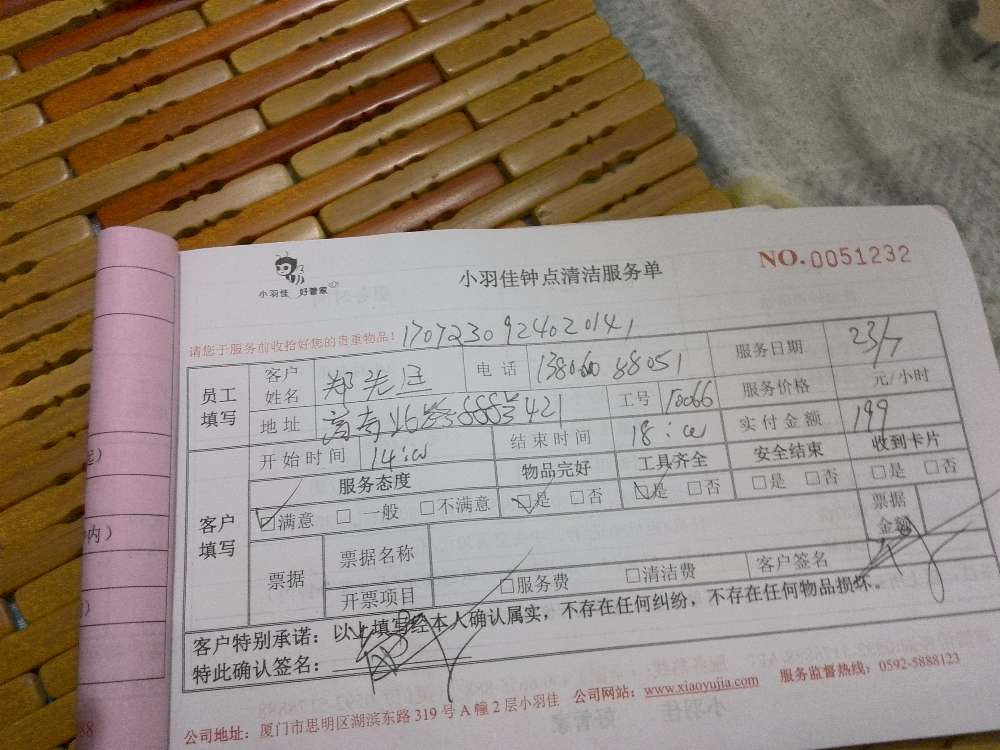 小羽佳 好管家
小羽佳钟点清洁服务单
NO.0051232
请您于服务前收拾好您的贵重物品！1707230924020141
员工填写 客户姓名 郑先生 电话 服务日期 23/7
地址 工号 10066 服务价格 元/小时
客户填写 开始时间 14:00 结束时间 18:00 实付金额 199
服务态度 物品完好 工具齐全 安全结束 收到卡片
☑满意 □一般 □不满意 ☑是 □否 ☑是 □否 □是 □否 □是 □否
票据 票据名称 票据金额
开票项目 □服务费 □清洁费 客户签名
客户特别承诺：以上填写经本人确认属实，不存在任何纠纷，不存在任何物品损坏。
特此确认签名：
公司地址：厦门市思明区湖滨东路 319 号 A 幢 2 层小羽佳 公司网站：www.xiaoyujia.com 服务监督热线：0592-5888123